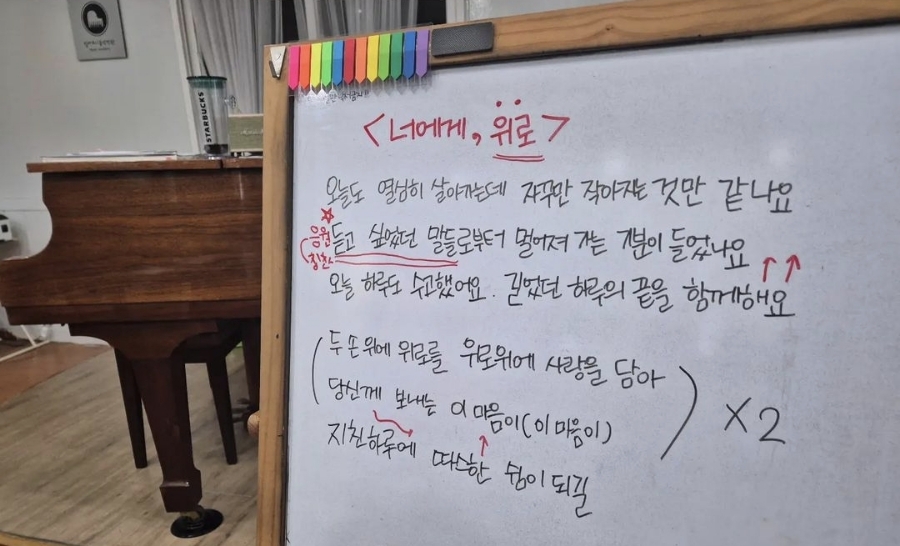 STARBUCKS
<너에게, 위로>
오늘도 열심히 살아가는데 자꾸만 작아지는 것만 같나요
응원
칭찬
듣고 싶었던 말들로부터 멀어져 가는 기분이 들었나요
오늘 하루도 수고했어요. 길었던 하루의 끝을 함께해요
(두 손 위에 위로를 위로위에 사랑을 담아
당신께 보내는 이 마음이(이 마음이)
지친하루에 따스한 쉼이 되길) X2